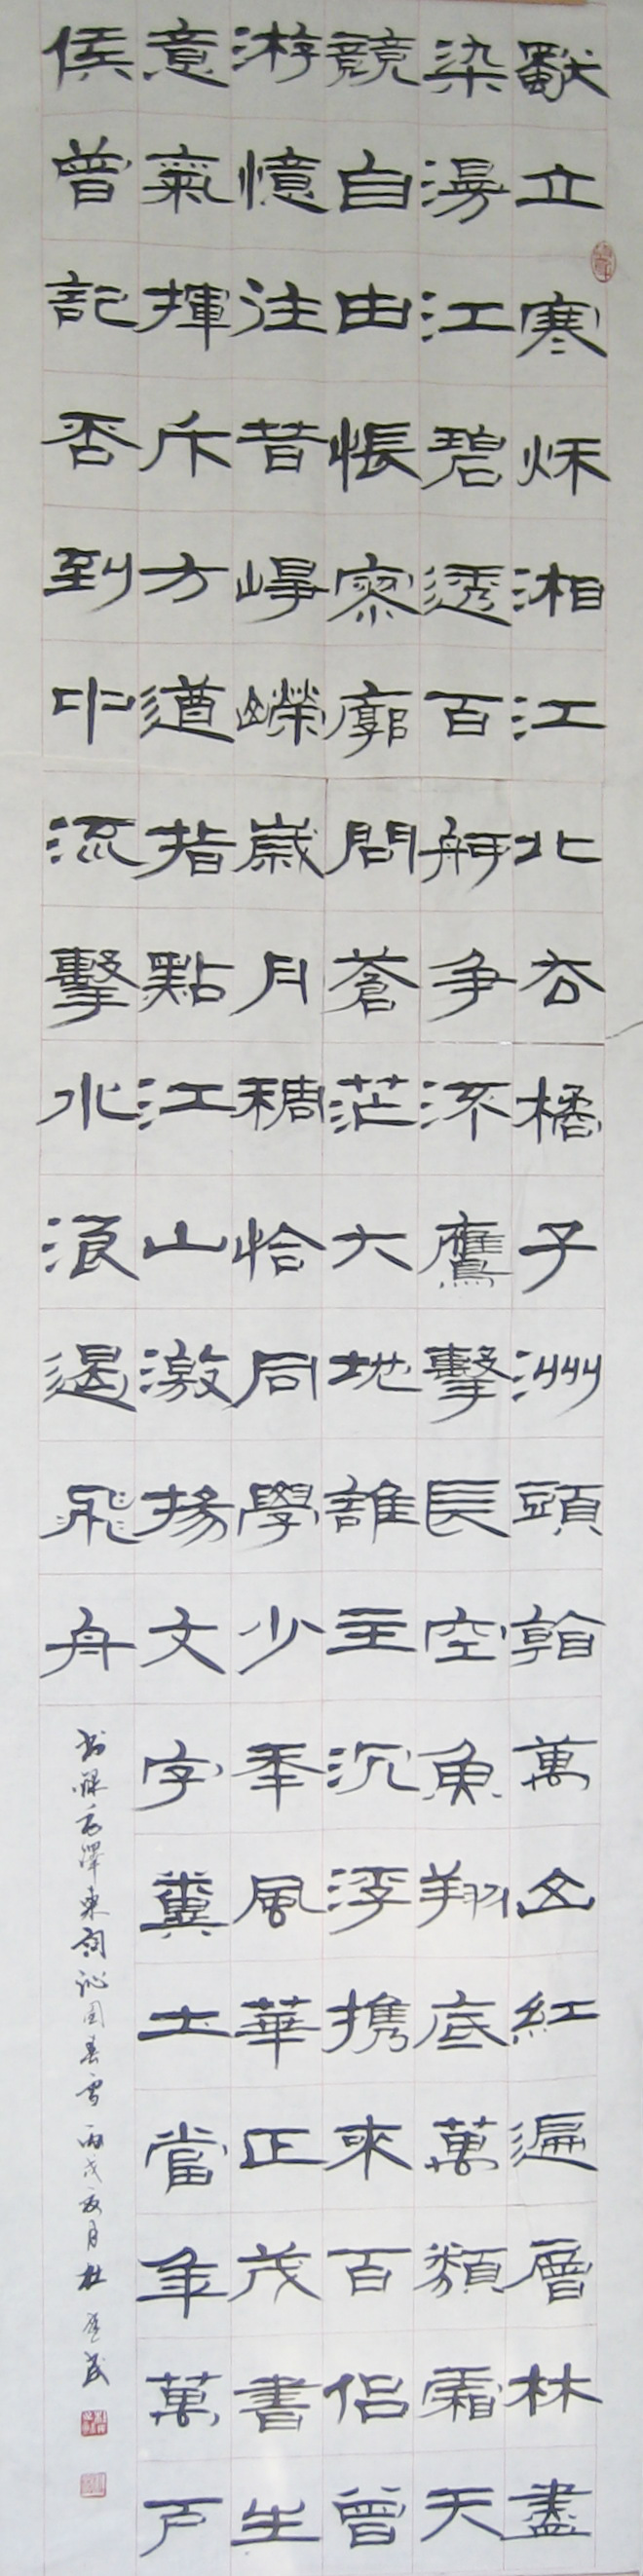 獨立寒秌湘江北去橘子洲頭看萬山紅遍層林盡
染漫江碧透百舸争流鷹擊長空魚翔底萬類霜天
競自由悵寥廓問蒼茫大地誰主沉浮携來百侣曾
游憶往昔崢嶸歲月稠恰同學少年風華正茂書生
意氣揮斥方遒指點江山激揚文字糞土當年萬户
侯曾記否到中流擊水浪遏飛舟
書録毛澤東詞沁園春雪丙戌夏月杜